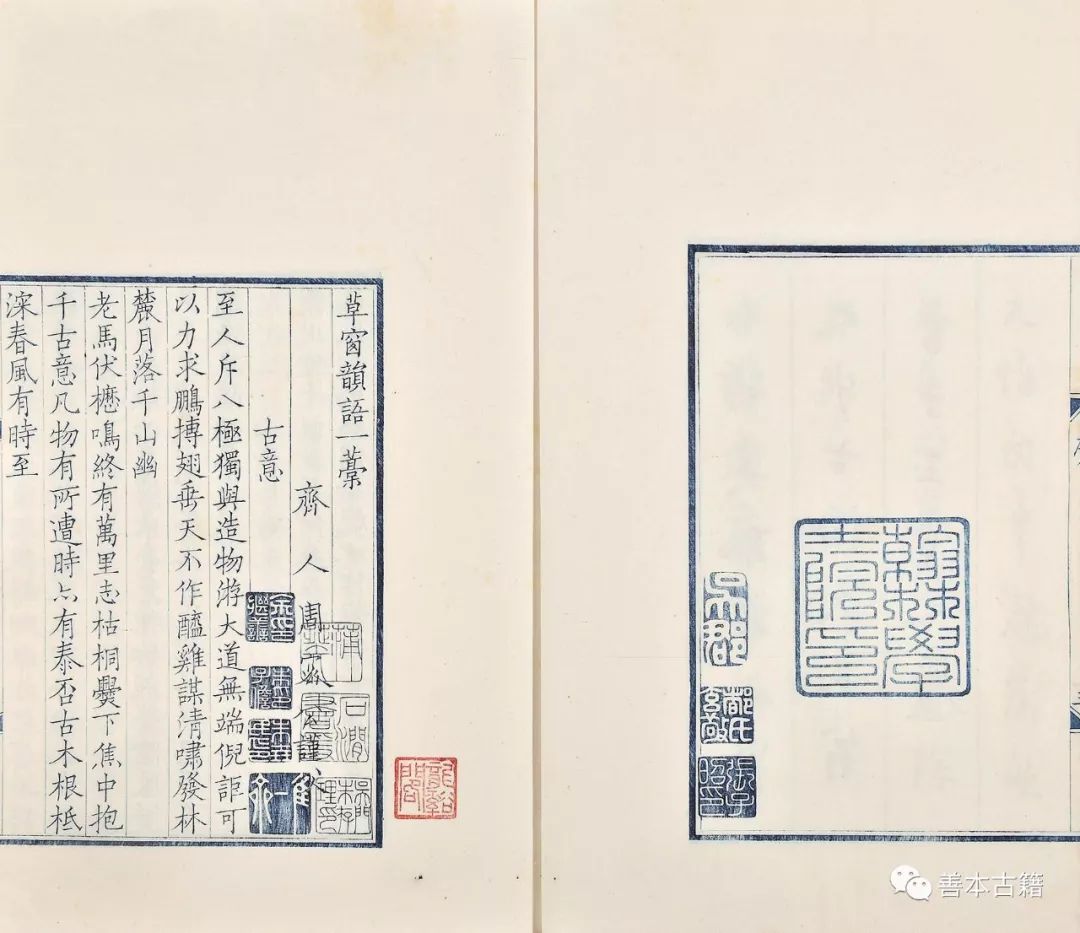 草窗韻語一藁
齊人周密公謹父
古意
至人斥八極獨與造物游大道無端倪詎可
以力求鵬搏翅垂天不作醯雞謀清嘯發林
麓月落千山幽
老馬伏櫪鳴終有萬里志枯桐爨下焦中抱
千古意凡物有所遭時亦有泰否古木根柢
深春風有時至
翰林學
院印
吳郡
都氏
玄敬
張子
昭印
善本古籍